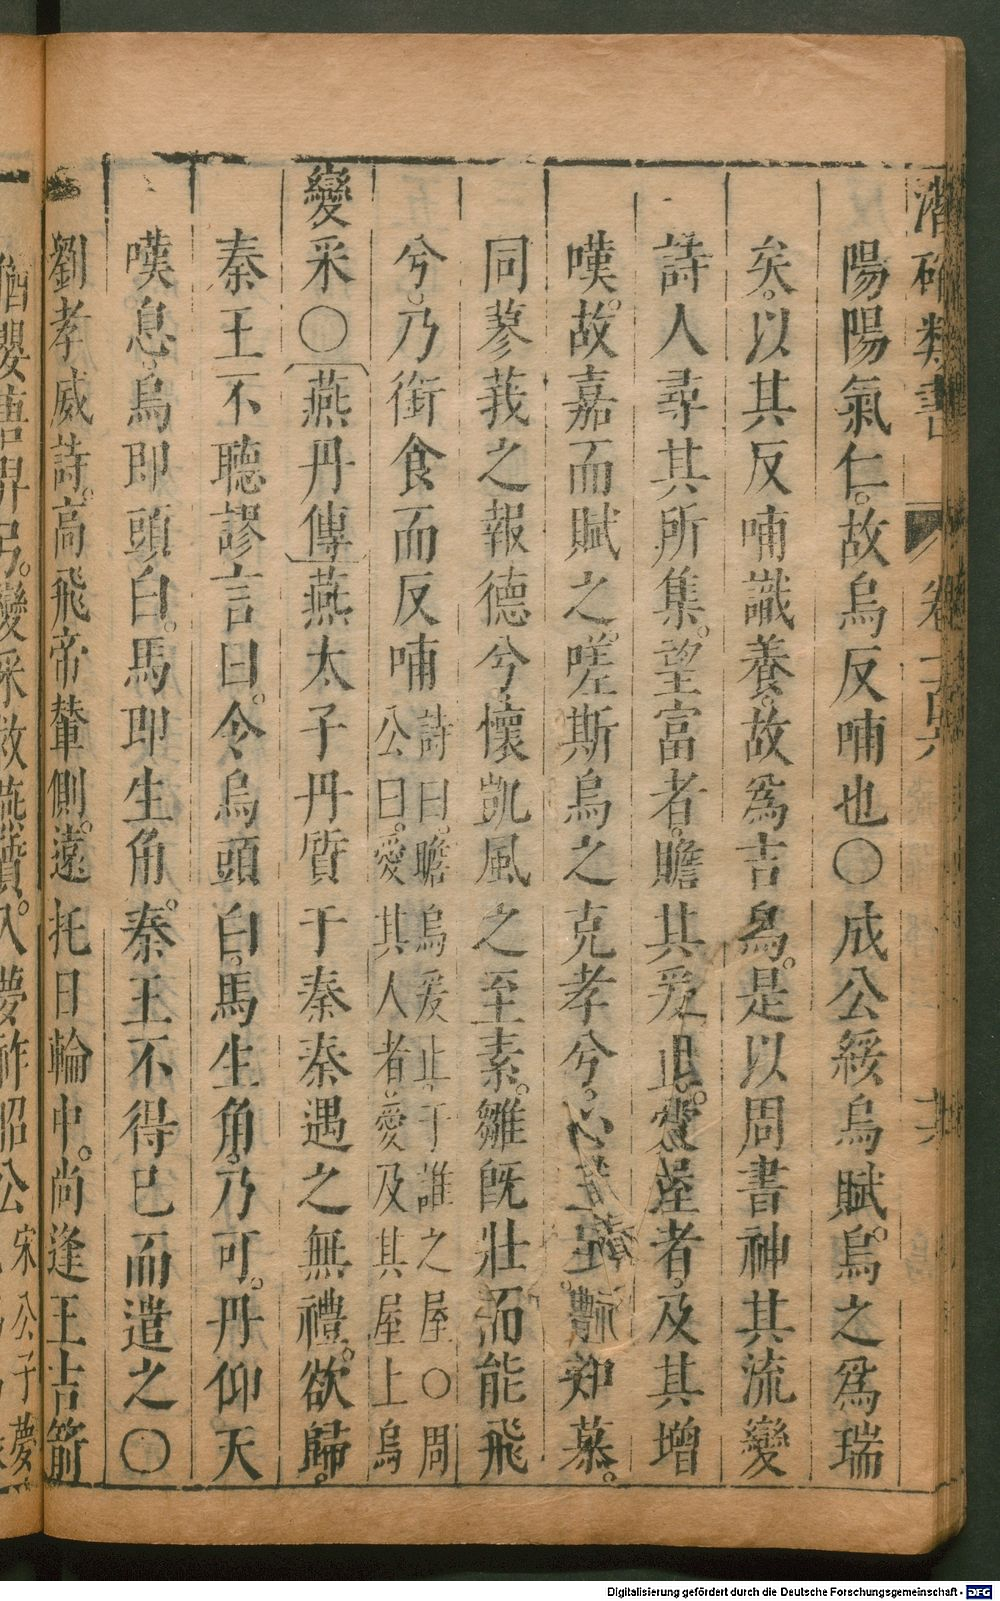 陽陽氣仁。故烏反哺也〇成公綏烏賦。烏之為瑞
矣。以其反哺識養。故為吉烏。是以周書神其流變
詩人尋其所集。望富者。瞻其爰止。愛屋者。及其增
嘆。故嘉而賦之。嗟斯烏之克孝兮。心知慕。
同蓼莪之報德兮。懷凱風之至素。雛旣壯而能飛
兮。乃銜食而反哺
詩曰。瞻烏爰止。于誰之屋〇周
公曰。愛其人者。愛及其屋上烏
變采〇燕丹傳燕太子丹質于秦秦遇之無禮。欲歸。
秦王不聽謬言曰。令烏頭白。馬生角。乃可。丹仰天
嘆息。烏即頭白。馬即生角。秦王不得已而遣之〇
劉孝威詩。高飛帝輦側。遠托日輪中。尚逢王吉箭
猶嬰夏羿弓。變采救燕質。入夢祚昭公
宋公子夢
Digitalisierung gefördert durch die Deutsche Forschungsgemeinschaft - DFG